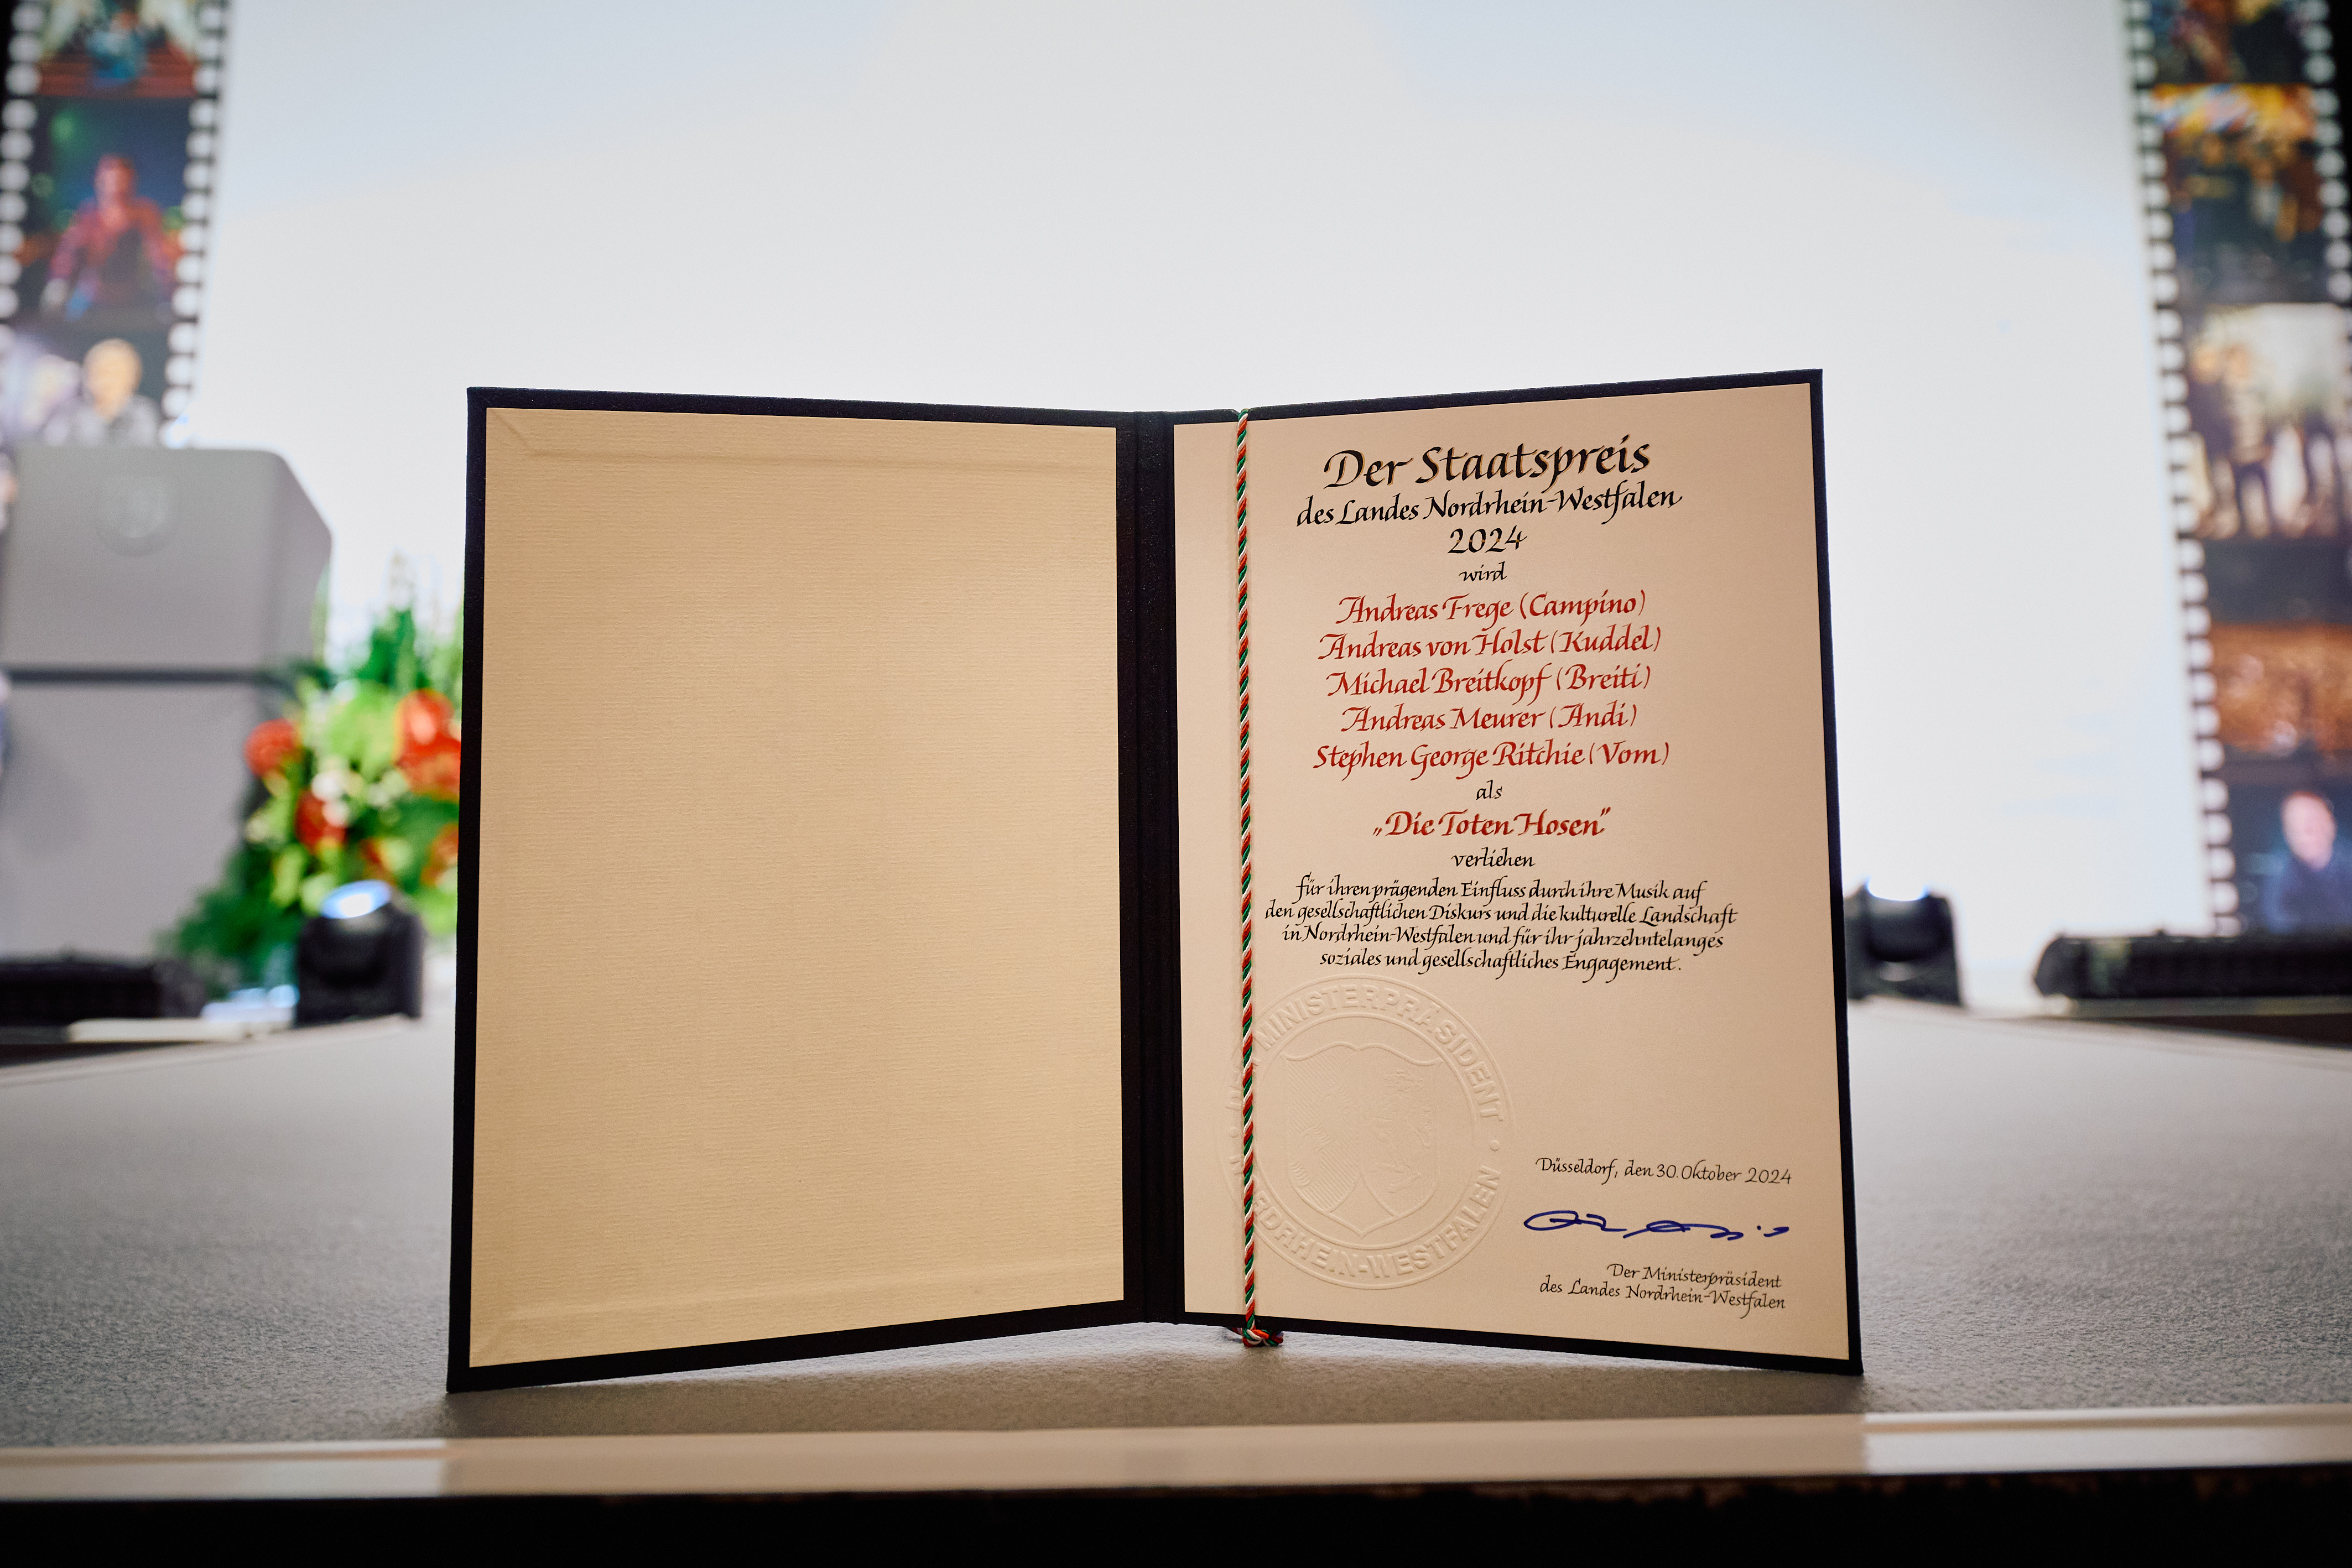 Der Staatspreis
des Landes Nordrhein-Westfalen
2024
wird
Andreas Frege (Campino)
Andreas von Holst (Kuddel)
Michael Breitkopf (Breiti)
Andreas Meurer (Andi)
Stephen George Ritchie (Vom)
als
„Die Toten Hosen”
verliehen
für ihren prägenden Einfluss durch ihre Musik auf
den gesellschaftlichen Diskurs und die kulturelle Landschaft
in Nordrhein-Westfalen und für ihr jahrzehntelanges
soziales und gesellschaftliches Engagement.
MINISTERPRÄSIDENT
NORDRHEIN-WESTFALEN
Düsseldorf, den 30. Oktober 2024
Der Ministerpräsident
des Landes Nordrhein-Westfalen